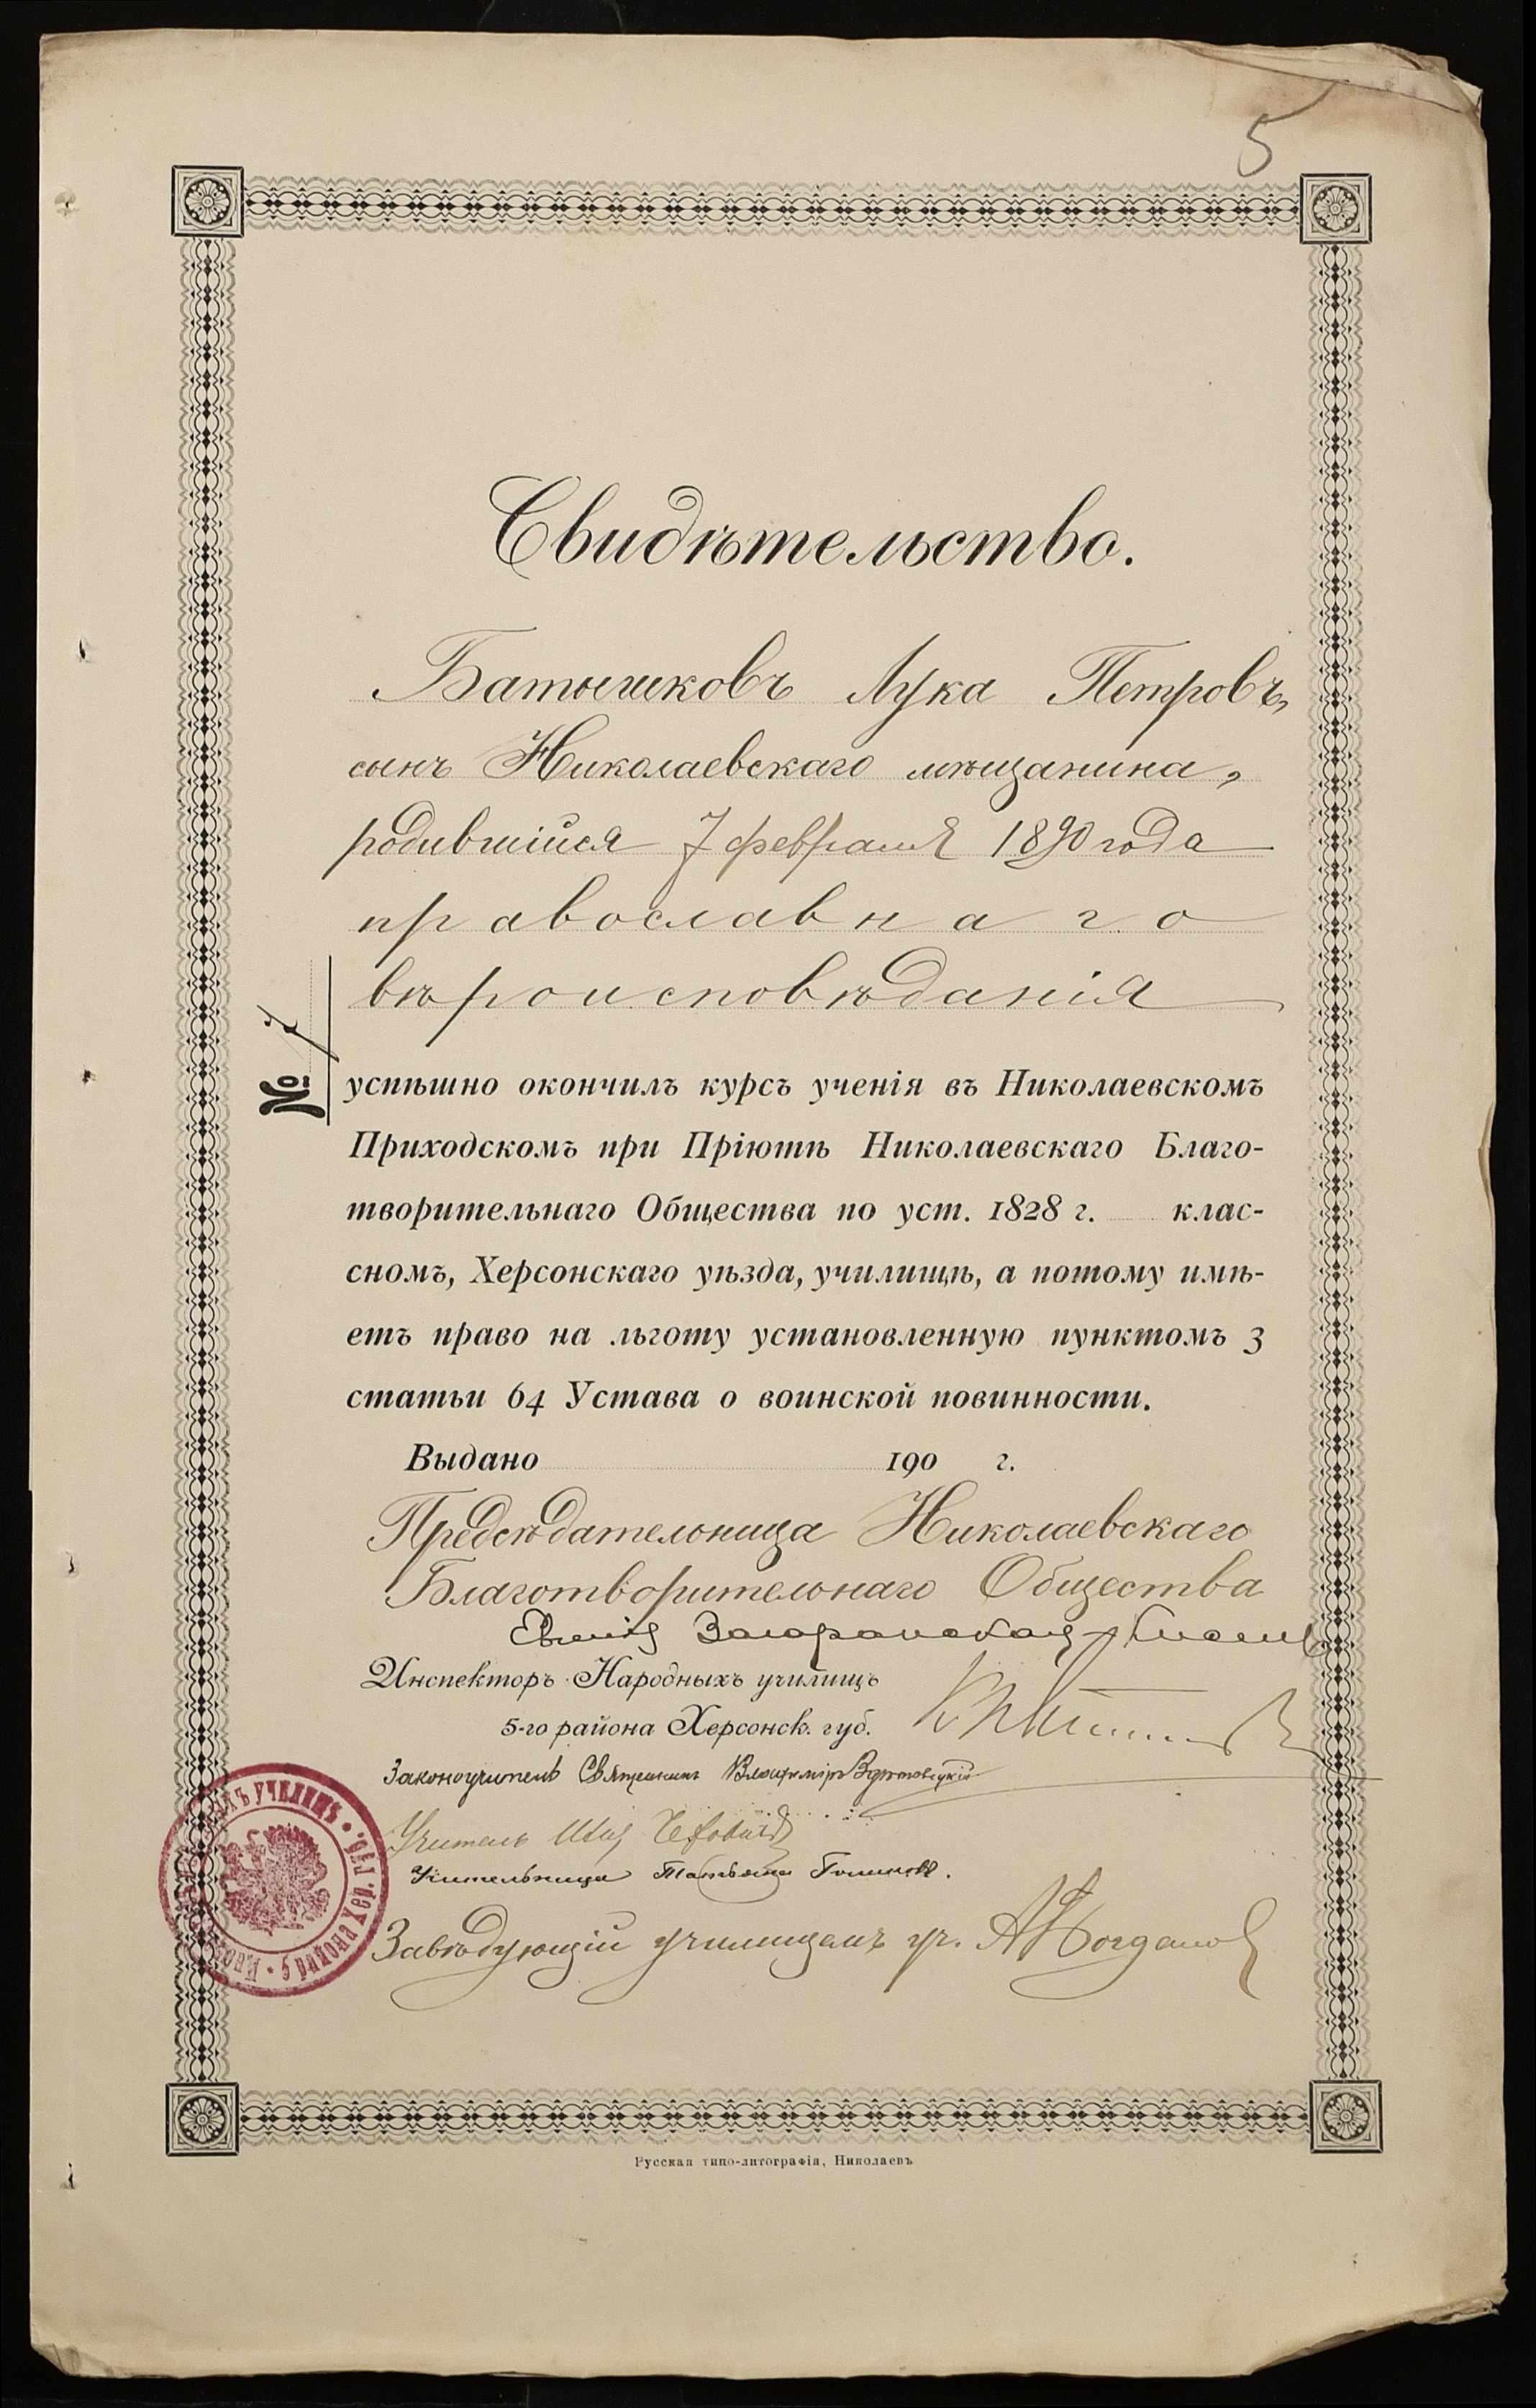 5
Свидѣтельство.
Батышковъ Лука Петровъ,
сынъ Николаевскаго мѣщанина,
родившійся 7 февраля 1890 года
православнаго
вѣроисповѣданія
№
успѣшно окончилъ курсъ ученія въ Николаевскомъ
Приходскомъ при Пріютѣ Николаевскаго Благо-
творительнаго Общества по уст. 1828 г. клас-
сномъ, Херсонскаго уѣзда, училищѣ, а потому имѣ-
етъ право на льготу установленную пунктомъ 3
статьи 64 Устава о воинской повинности.
Выдано 190 г.
Предсѣдательница Николаевскаго
Благотворительнаго Общества
Инспекторъ Народныхъ училищъ
5-го района Херсонск. губ.
Законоучитель Священникъ Владиміръ
Учитель
Учительница Татьяна
Завѣдующій училищемъ уч. А Богданов
Русская типо-литографія, Николаевъ